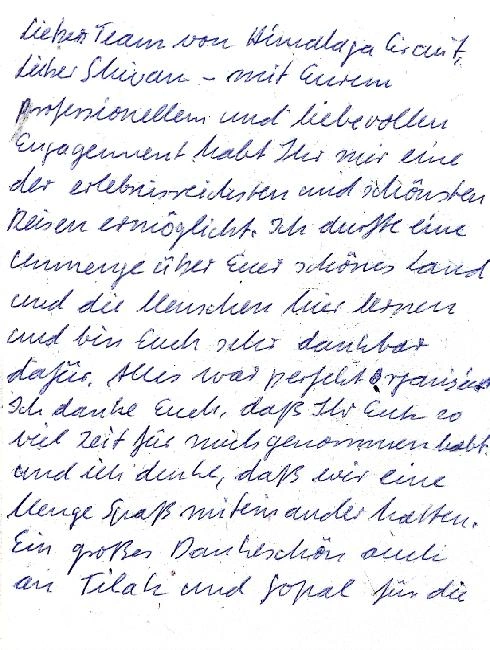 Liebes Team von Himalaya Circuit,
Lieber Shivan – mit Eurem
professionellem und liebevollen
Engagement habt Ihr mir eine
der erlebnisreichsten und schönsten
Reisen ermöglicht. Ich durfte eine
Unmenge über Euer schönes Land
und die Menschen hier lernen
und bin Euch sehr dankbar
dafür. Alles war perfekt organisiert
Ich danke Euch, daß Ihr Euch so
viel Zeit für mich genommen habt
und ich denke, daß wir eine
Menge Spaß miteinander hatten.
Ein großes Dankeschön auch
an Tilak und Gopal für die